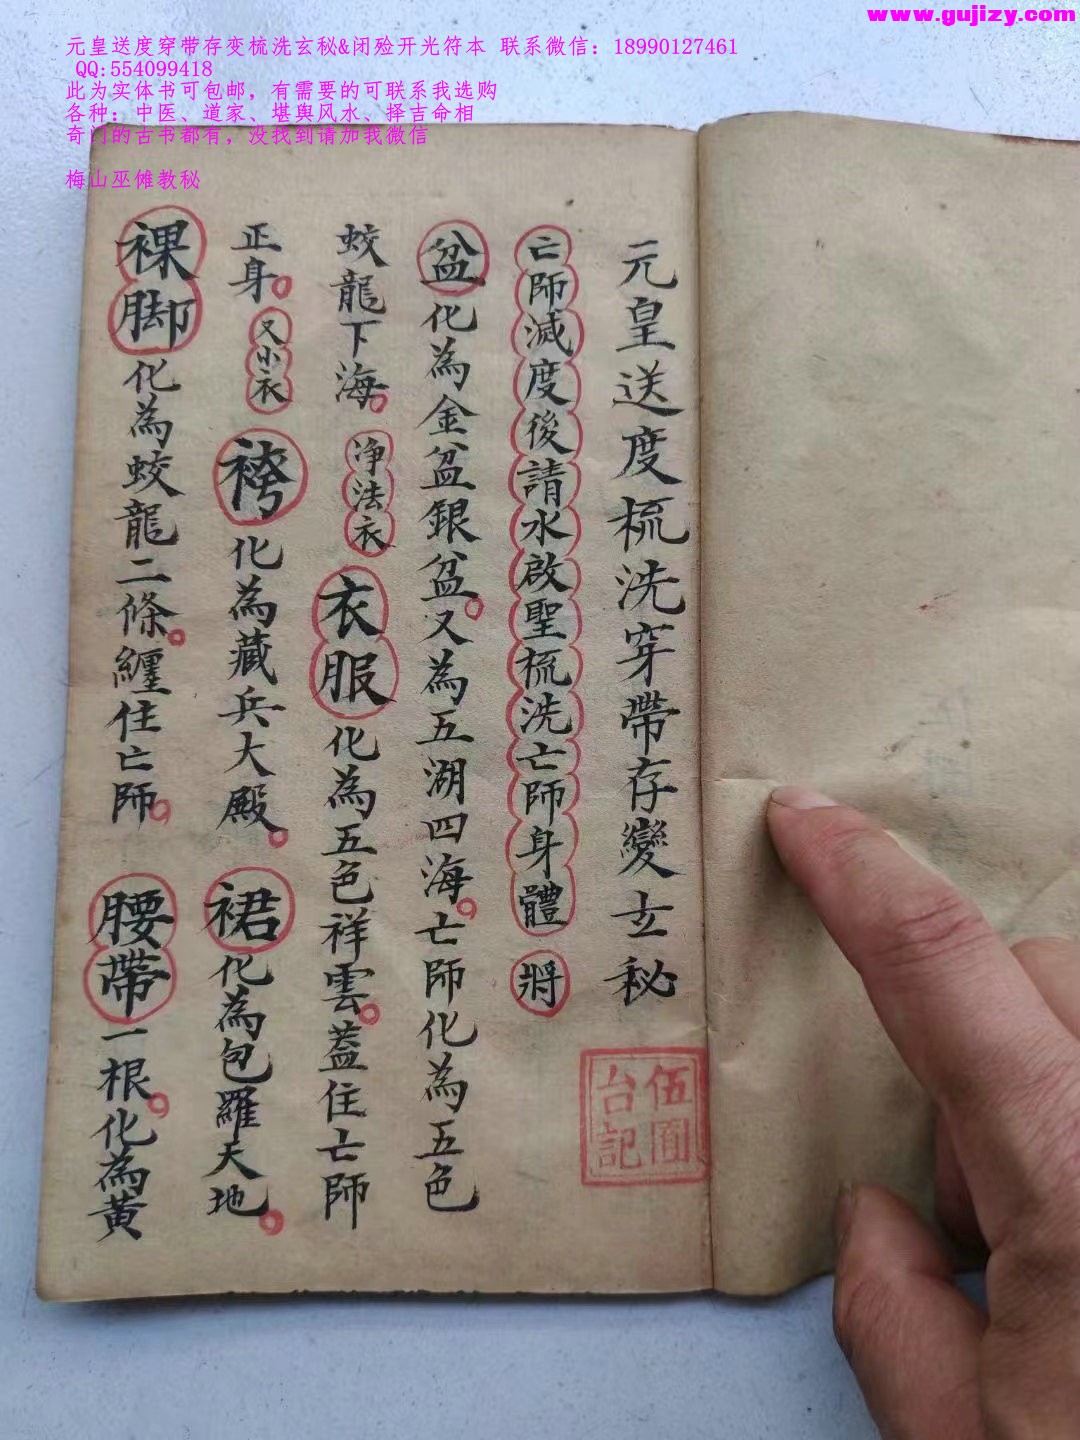 www.gujizy.com
元皇送度穿带存变梳洗玄秘&闭殓开光符本 联系微信：18990127461
QQ:554099418
此为实体书可包邮，有需要的可联系我选购
各种：中医、道家、堪舆风水、择吉命相
奇门的古书都有，没找到请加我微信
梅山巫傩教秘
元皇送度梳洗穿帶存變玄秘
亡師滅度後請水啟聖梳洗亡師身體 將
盆化為金盆銀盆。又為五湖四海。亡師化為五色
蛟龍下海。净法衣 衣服化為五色祥雲。蓋住亡師
正身。又小衣 袴化為藏兵大殿。裙化為包羅天地。
裸脚化為蛟龍二條。纏住亡師。腰帶一根。化為黃
伍圓
台記